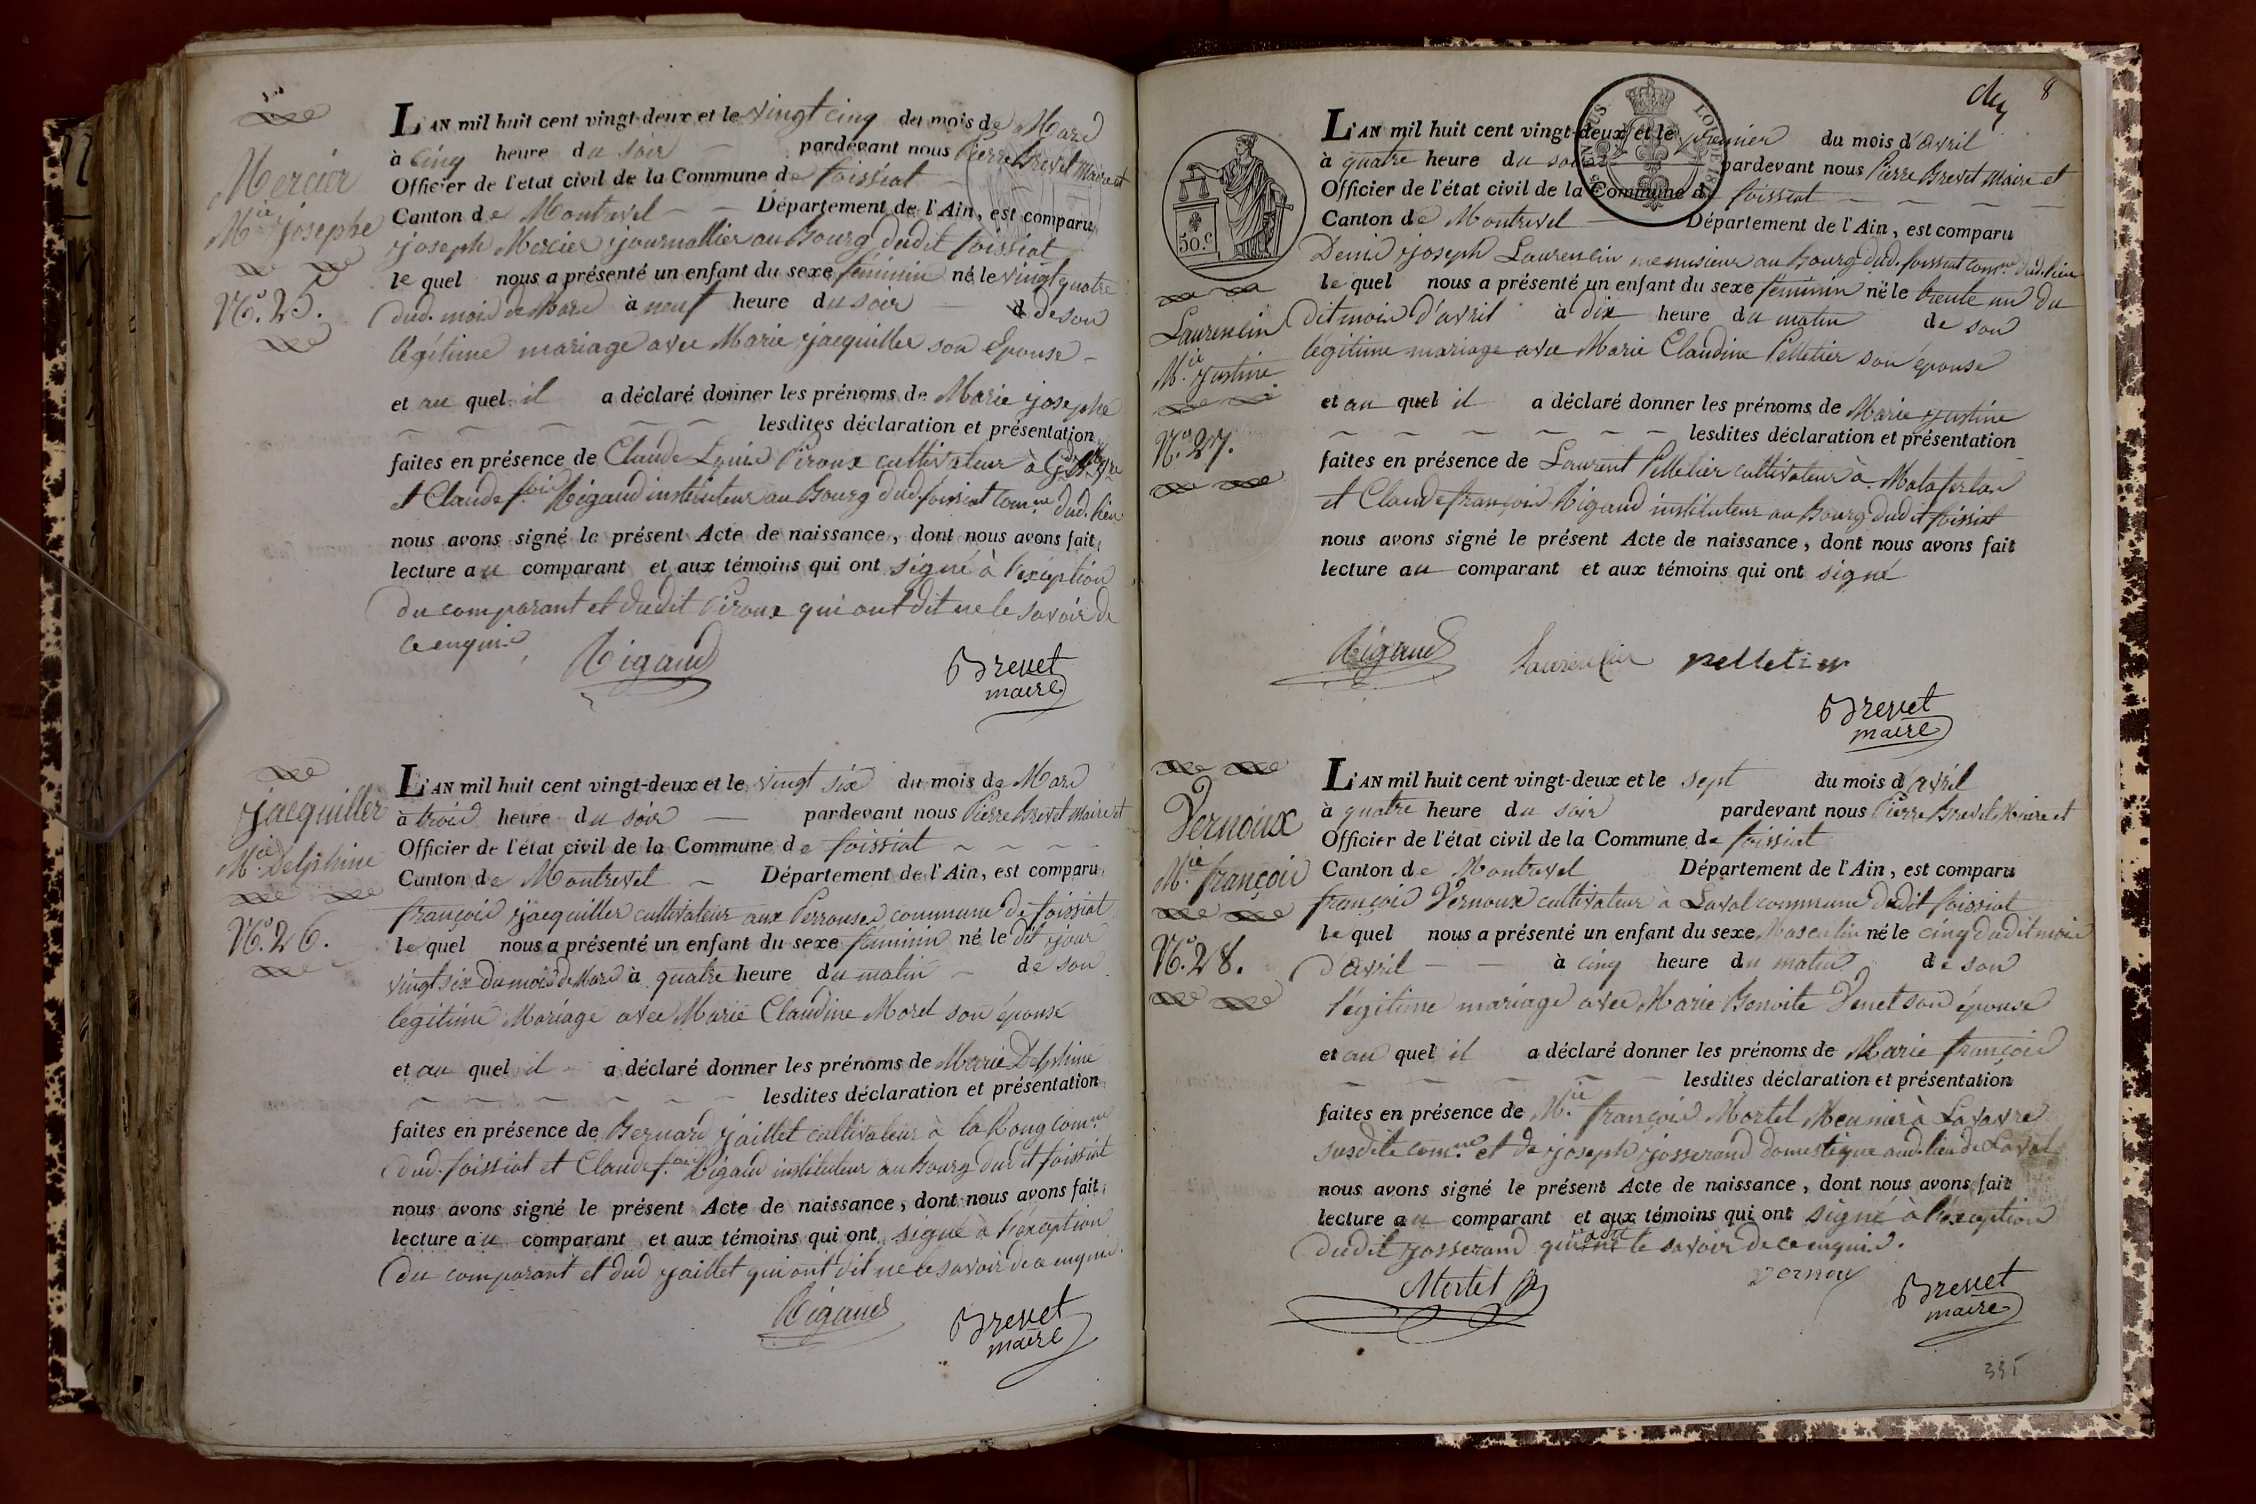 Mercier
M.ie josephe
N.o 25.
L'AN mil huit cent vingt-deux et le vingt cinq du mois de Mars
à cinq heure du soir pardevant nous Pierre Brevet Maire et
Officier de l'état civil de la Commune de foissiat
Canton de Montrevel Département de l'Ain, est comparu
joseph Mercier journallier au Bourg dudit foissiat
le quel nous a présenté un enfant du sexe féminin né le vingt quatre
dud. mois de Mars à neuf heure du soir de son
légitime mariage avec Marie jacquiller son Epouse
et au quel il a déclaré donner les prénoms de Marie josephe
lesdites déclaration et présentation
faites en présence de Claude Louis Piroux cultivateur à
et Claude f.ois Rigaud instituteur au Bourg dud. foissiat com.ne dud. lieu
nous avons signé le présent Acte de naissance, dont nous avons fait
lecture au comparant et aux témoins qui ont signé à l'exception
du comparant et dudit Piroux qui ont dit ne le savoir de
ce enquis
Rigaud
Brevet
maire
jacquiller
M.ie Delphine
N.o 26.
L'AN mil huit cent vingt-deux et le vingt six du mois de Mars
à trois heure du soir pardevant nous Pierre Brevet Maire et
Officier de l'état civil de la Commune de foissiat
Canton de Montrevel Département de l'Ain, est comparu
françois jacquiller cultivateur aux Perrouses commune de foissiat
le quel nous a présenté un enfant du sexe féminin né le dit jour
vingt six du mois de Mars à quatre heure du matin de son
légitime Mariage avec Marie Claudine Morel son épouse
et au quel il a déclaré donner les prénoms de Marie Delphine
lesdites déclaration et présentation
faites en présence de Bernard jaillet cultivateur à la Roug com.ne
dud. foissiat et Claude f.ois Rigaud instituteur au bourg dudit foissiat
nous avons signé le présent Acte de naissance, dont nous avons fait
lecture au comparant et aux témoins qui ont signé à l'exception
du comparant et dud jaillet qui ont dit ne le savoir de ce enquis.
Rigaud
Brevet
maire
8
50.c
Laurencin
M.ie justine
N.o 27.
L'AN mil huit cent vingt-deux et le premier du mois d'avril
à quatre heure du soir pardevant nous Pierre Brevet Maire et
Officier de l'état civil de la Commune de foissiat
Canton de Montrevel Département de l'Ain, est comparu
Denis joseph Laurencin menuisier au bourg dud. foissiat com.ne dud. lieu
le quel nous a présenté un enfant du sexe féminin né le trente un du
dit mois d'avril à dix heure du matin de son
légitime mariage avec Marie Claudine Pelletier son épouse
et au quel il a déclaré donner les prénoms de Marie justine
lesdites déclaration et présentation
faites en présence de Laurent Pelletier cultivateur à Matafertan
et Claude françois Rigaud instituteur au bourg dudit foissiat
nous avons signé le présent Acte de naissance, dont nous avons fait
lecture au comparant et aux témoins qui ont signé
Rigaud Laurencin pelletier
Brevet
maire
Vernoux
M.ie françois
N.o 28.
L'AN mil huit cent vingt-deux et le sept du mois d'avril
à quatre heure du soir pardevant nous Pierre Brevet Maire et
Officier de l'état civil de la Commune de foissiat
Canton de Montrevel Département de l'Ain, est comparu
françois Vernoux cultivateur à Laval commune dudit foissiat
le quel nous a présenté un enfant du sexe Masculin né le cinq dudit mois
d'avril à cinq heure du matin de son
légitime mariage avec Marie Benoite Venet son épouse
et au quel il a déclaré donner les prénoms de Marie françois
lesdites déclaration et présentation
faites en présence de M.ie françois Mortel Meunier à Lavavre
susdite com.ne et de joseph josserand domestique aud. lieu de Laval
nous avons signé le présent Acte de naissance, dont nous avons fait
lecture au comparant et aux témoins qui ont signé à l'exception
dudit josserand qui a dit ne le savoir de ce enquis.
Mortel vernoux Brevet
maire
335